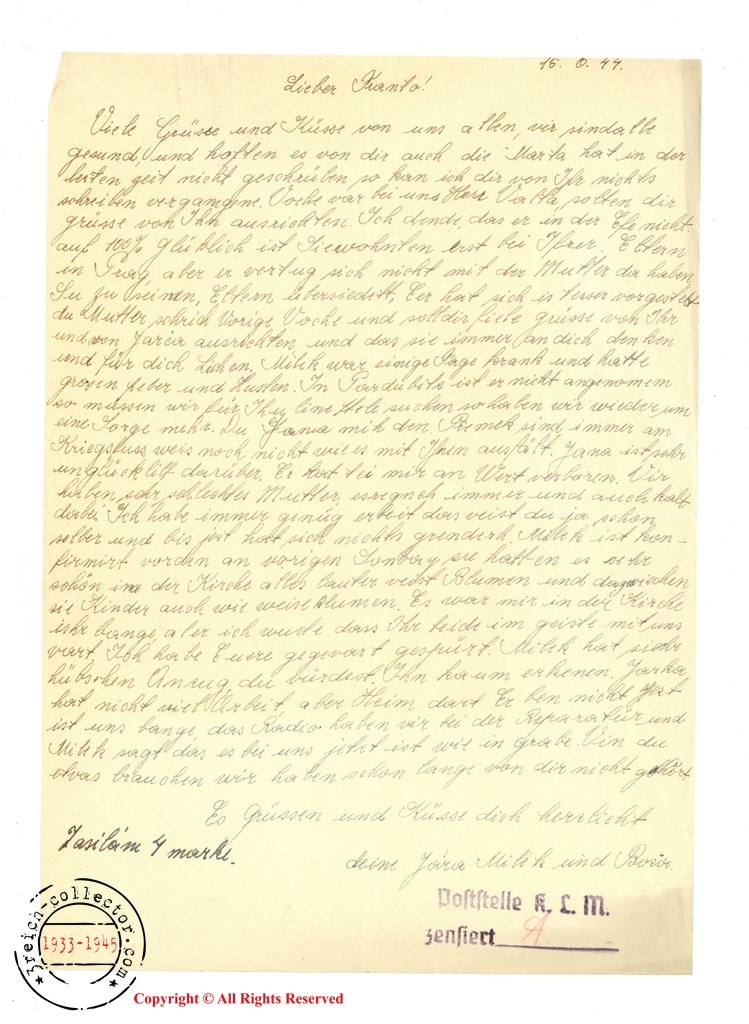 15. 0. 44.
Lieber Franto!
Viele Grüsse und Küsse von uns allen, vir sind alle
gesund, und hoffen es von dir auch die Marta hat in der
lesten zeit nicht geschrüben so kan ich dir von Ihr nichts
schreiben vergangene. Voche var bei uns Herr Valta, solten dir
grüsse von Ihn ausrichten. Ich dende, das er in der Ehe nicht
auf 100% Glüklich ist Sie wohnten erst bei Ihrer, Eltern
in Prag, aber er vertug sich nicht mit der Mutter da haben
Su zu seinen, Eltern übersiedelt, Eer hat sich is besser vorgestelt
du Mutter schrib Vorige Voche und soll dir fiele grüsse von Ihr
und von Jarca ausrichten, und das sie immer an dich denken
und für dich Milek war einige Tage krank und hatte
grosen feber und Husten. In Pardubits ist er nicht angenomem
so müssen wir für Ihn eine stele suchen so haben wir wieder um
eine Sorge mehr. Du Jana mih den Premek sind immer am
Kriegsfuss, weis noch nicht wie es mit Ihnen ausfält. Jana ist sehr
unglücklih darüber. Er hat bei mir an Wert verboren. Vir
haben sehr schlechtes Mutter esregneh immer und auch kalt
dabei. Ich habe immer genüg erbeit das veist du ja schon
selber und bis jest hat sich nichts Milek ist kon-
firmirt vorden an vorigen Sontag sie hatten es sehr
schön in der Kirche alles lauter veise Blumen und dazwischen
sie Kinder auch wie weise Blumen. Es war mir in der Kirche
sehr bange, aler ich wuste dass Ihr beide im geiste mit uns
vart. Ich habe Euere gegevart gespürt. Milek hat siehr
hübschen Anzug, du bürdest, Ihn kaum erkenen. Jarka
hat nicht viel Arbeit, aber Heim dart Er ben nicht Jezt
ist uns bange, das Radio haben vir bei der Reparatür und
Milek sagt das es bei uns jetzt ist wie in grabe. Ven du
etvas brauchen wir haben schon lange von dir nicht gehört.
Es Grüssen und Küsse dich herzlicht
Zasílám 4 marke.
deine Jára Milek und Boża.
Poststelle K. L. M.
zensiert
3reich-collector.com
1933-1945
Copyright © All Rights Reserved